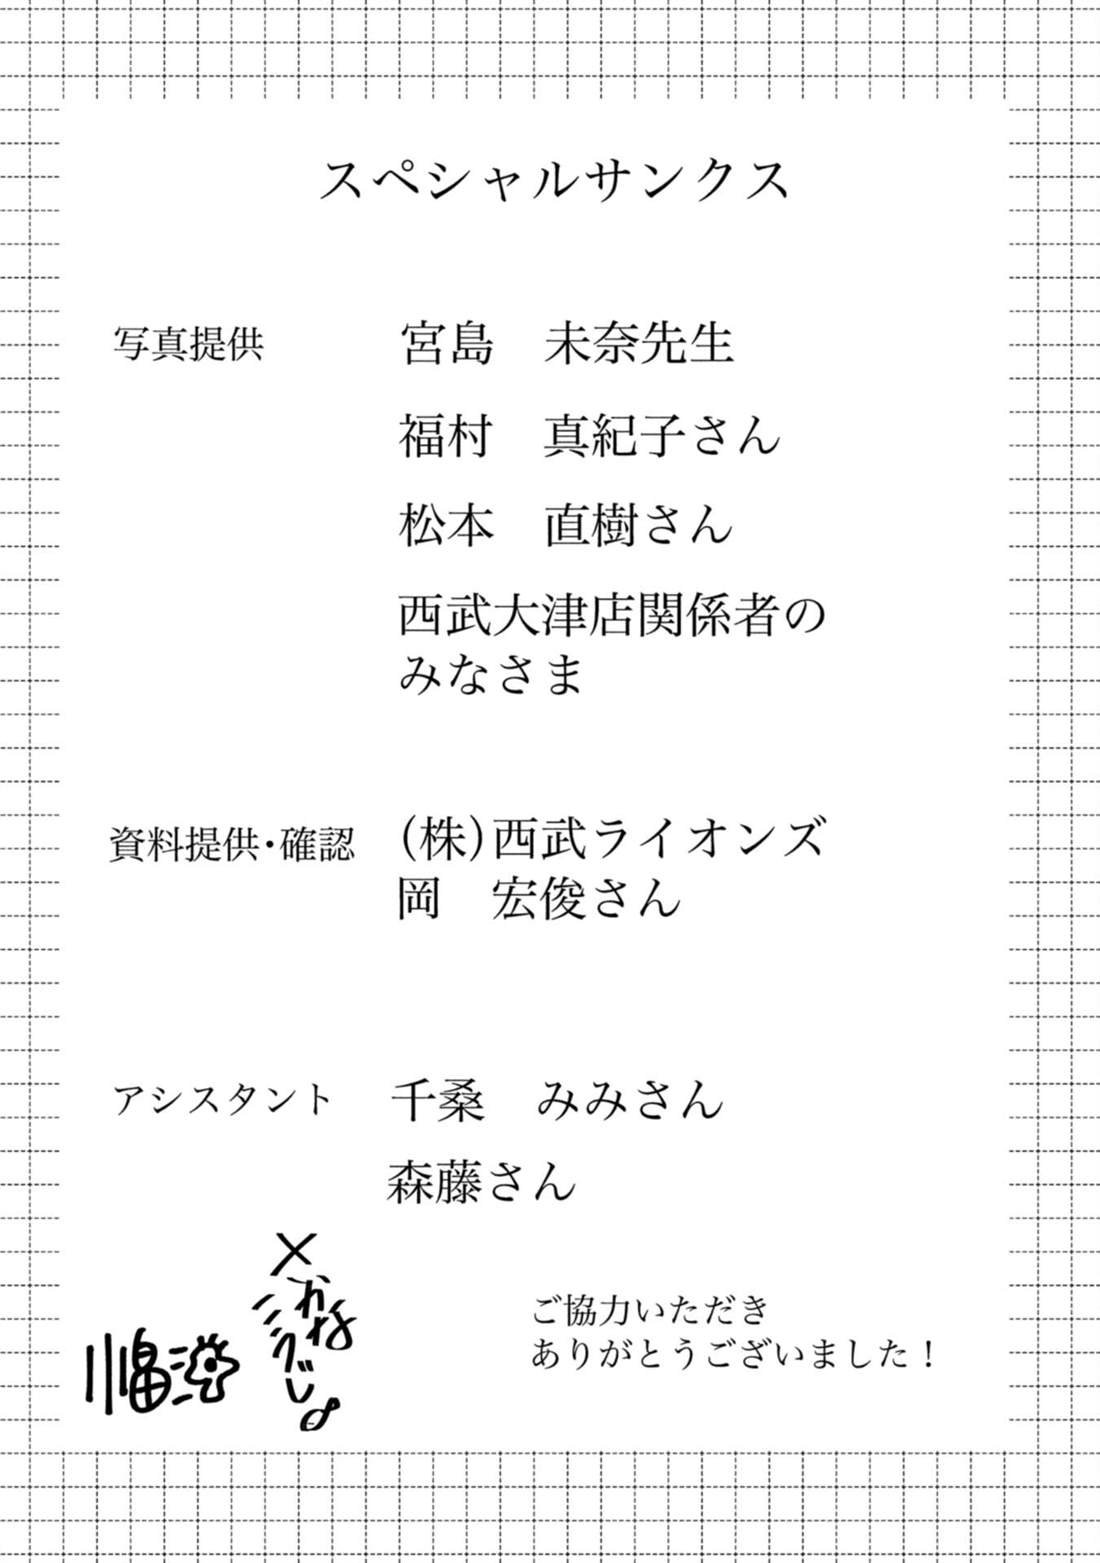 スペシャルサンクス
写真提供　宮島　未奈先生
福村　真紀子さん
松本　直樹さん
西武大津店関係者の
みなさま
資料提供・確認　(株)西武ライオンズ
岡　宏俊さん
アシスタント　千桑　みみさん
森藤さん
ご協力いただき
ありがとうございました！